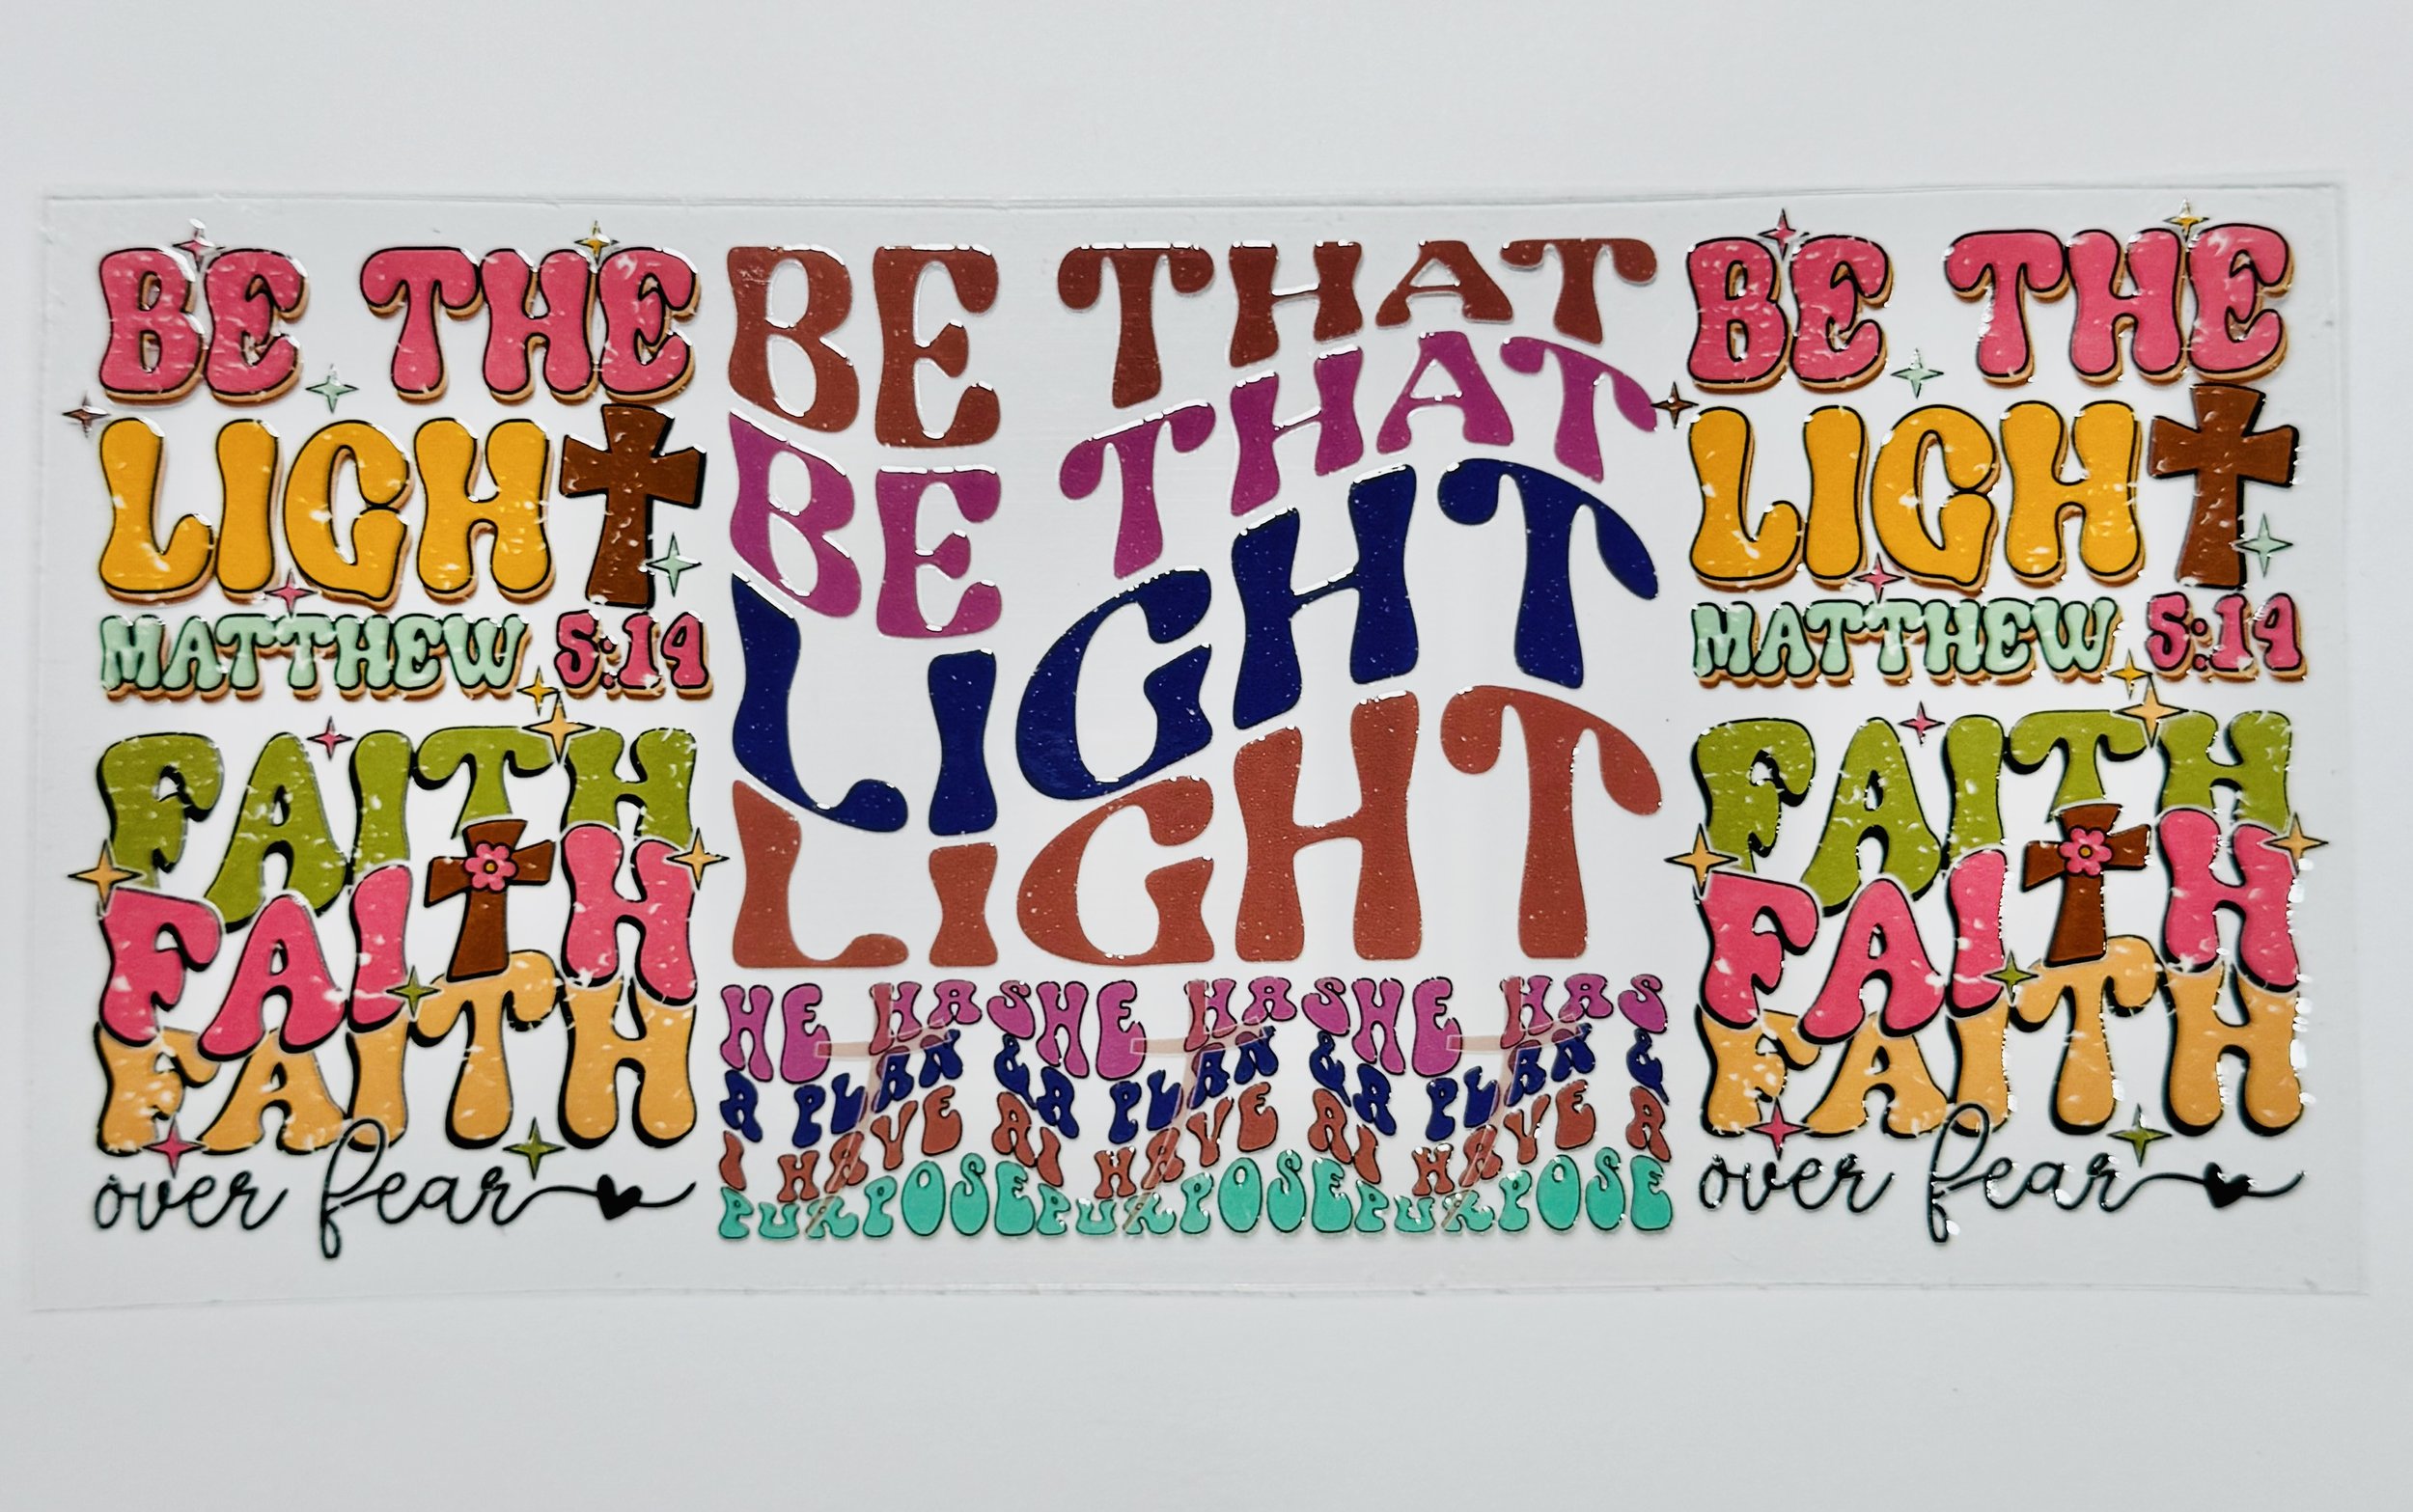 BE THE
LIGHT
MATTHEW 5:14
FAITH
FAITH
FAITH
over fear
BE THAT
BE THAT
LIGHT
LIGHT
HE HAS HE HAS HE HAS
A PLAN & A PLAN & A PLAN &
I HAVE A I HAVE A I HAVE A
PURPOSE PURPOSE PURPOSE
BE THE
LIGHT
MATTHEW 5:14
FAITH
FAITH
FAITH
over fear